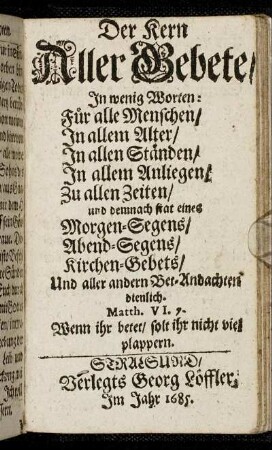 Der Kern
Aller Gebete/
In wenig Worten:
Für alle Menschen/
In allem Alter/
In allen Ständen/
In allem Anliegen/
Zu allen Zeiten/
und demnach stat eines
Morgen-Segens/
Abend-Segens/
Kirchen-Gebets/
Und aller andern Bet-Andachten
dienlich.
Matth. VI. 7.
Wenn ihr betet/ solt ihr nicht viel
plappern.
STRALSUND/
Verlegts Georg Löffler/
Im Jahr 1685.